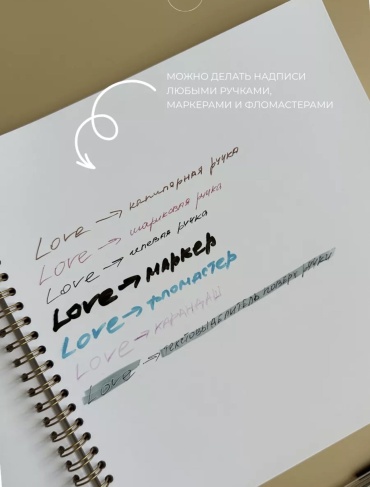 МОЖНО ДЕЛАТЬ НАДПИСИ
ЛЮБЫМИ РУЧКАМИ,
МАРКЕРАМИ И ФЛОМАСТЕРАМИ
Love → капилярная ручка
Love → шариковая ручка
Love → гелевая ручка
Love → маркер
Love → фломастер
Love → КАРАНДАШ
Love → текстовыделитель поверх ручки